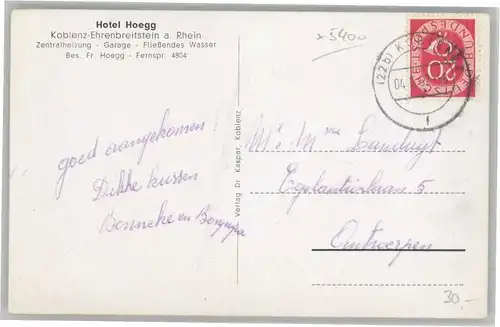 Hotel Hoegg
Koblenz-Ehrenbreitstein a. Rhein
Zentralheizung - Garage - Fließendes Wasser
Bes. Fr. Hoegg - Fernspr. 4804
x 5400
DEUTSCHE BUNDESPOST
20
(22b) KOBLENZ
04
f
goed aangekomen!
Dikke kussen
Bonneke en Bompa
Verlag Dr. Kasper, Koblenz
Mr & Mme
Eglantierlaan 5
Antwerpen
30,-